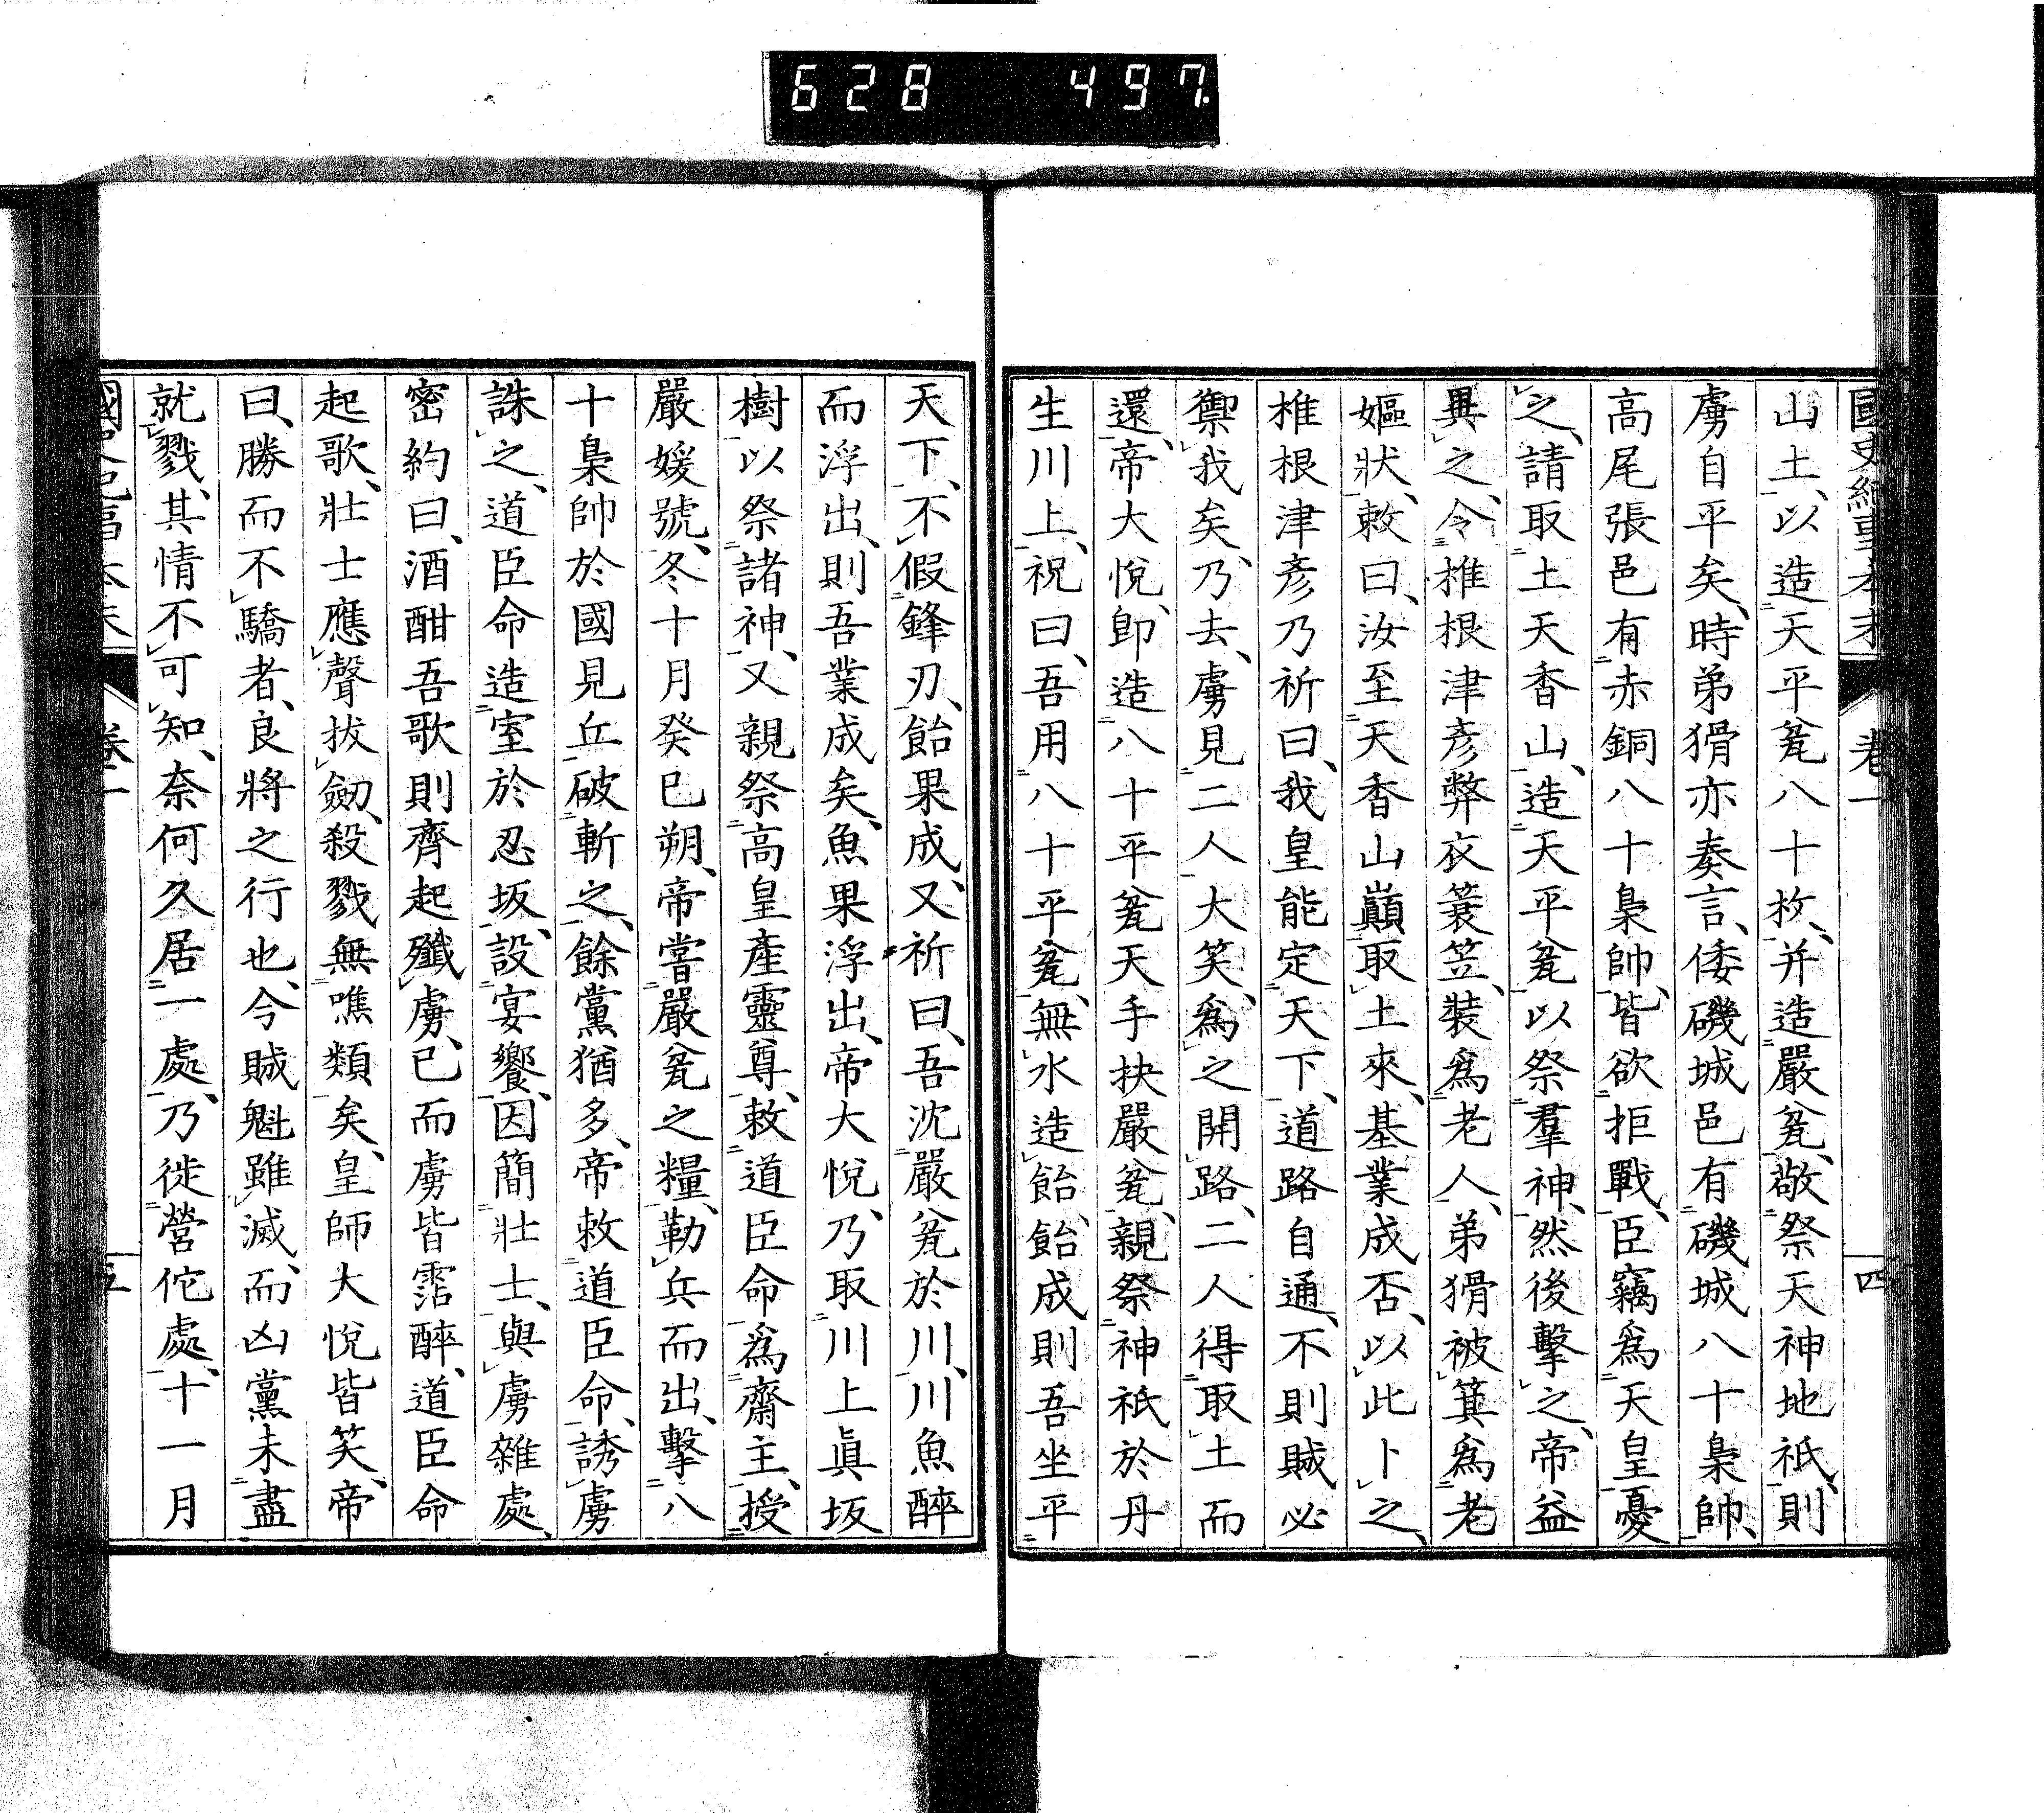 628 497.
國史紀事本末 卷一 四
山土、以造天平瓮八十枚、并造嚴瓮、敬祭天神地祇、則
虜自平矣、時弟猾亦奏言、倭磯城邑有磯城八十梟帥、
高尾張邑有赤銅八十梟帥、皆欲拒戰、臣竊爲天皇憂
之、請取土天香山、造天平瓮以祭羣神、然後擊之、帝益
異之、令椎根津彥弊衣蓑笠、裝爲老人、弟猾被箕爲老
嫗狀、敕曰、汝至天香山巔取土來、基業成否、以此卜之、
椎根津彥乃祈曰、我皇能定天下、道路自通、不則賊必
禦我矣、乃去、虜見二人大笑、爲之開路、二人得取土而
還、帝大悅、卽造八十平瓮天手抉嚴瓮、親祭神祇於丹
生川上、祝曰、吾用八十平瓮、無水造飴、飴成則吾坐平
天下、不假鋒刃、飴果成、又祈曰、吾沈嚴瓮於川、川魚醉
而浮出、則吾業成矣、魚果浮出、帝大悅、乃取川上眞坂
樹以祭諸神、又親祭高皇產靈尊、敕道臣命爲齋主、授
嚴媛號、冬十月癸巳朔、帝嘗嚴瓮之糧、勒兵而出、擊八
十梟帥於國見丘破斬之、餘黨猶多、帝敕道臣命、誘虜
誅之、道臣命造室於忍坂、設宴饗、因簡壯士、與虜雜處、
密約曰、酒酣吾歌則齊起殲虜、已而虜皆霑醉、道臣命
起歌、壯士應聲拔劔、殺戮無噍類矣、皇師大悅皆笑、帝
曰、勝而不驕者、良將之行也、今賊魁雖滅、而凶黨未盡
就戮、其情不可知、奈何久居一處、乃徙營佗處、十一月
國史紀事本末 卷一 五